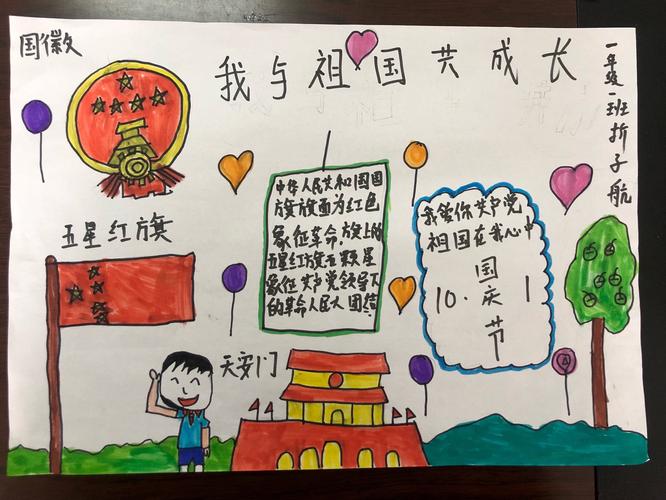 国徽
我与祖国共成长
一年级一班折子航
五星红旗
中华人民共和国国
旗旗面为红色
象征革命,旗上的
五星红旗五颗星
象征共产党领导下
的革命人民大团结
我爱你共产党
祖国在我心中
国庆节
10.1
天安门